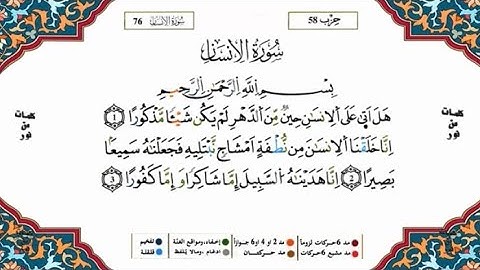 76 سورة الإنسان
حزب 58
سُورَةُ الإِنسَانِ
بِسْمِ اللَّهِ الرَّحْمَٰنِ الرَّحِيمِ
هَلْ أَتَىٰ عَلَى الْإِنسَانِ حِينٌ مِّنَ الدَّهْرِ لَمْ يَكُن شَيْئًا مَّذْكُورًا ١
إِنَّا خَلَقْنَا الْإِنسَانَ مِن نُّطْفَةٍ أَمْشَاجٍ نَّبْتَلِيهِ فَجَعَلْنَاهُ سَمِيعًا
بَصِيرًا 2 إِنَّا هَدَيْنَاهُ السَّبِيلَ إِمَّا شَاكِرًا وَإِمَّا كَفُورًا 3
كلمات
من
نور
كلمات
من
نور
مد 6 حركات لزوماً
مد 2 أو 4 أو 6 جوازاً
إخفاء، ومواقع الغنة
تفخيم
مد مشبع 6 حركات
مد حركتان
إدغام، وما لا يلفظ
قلقلة